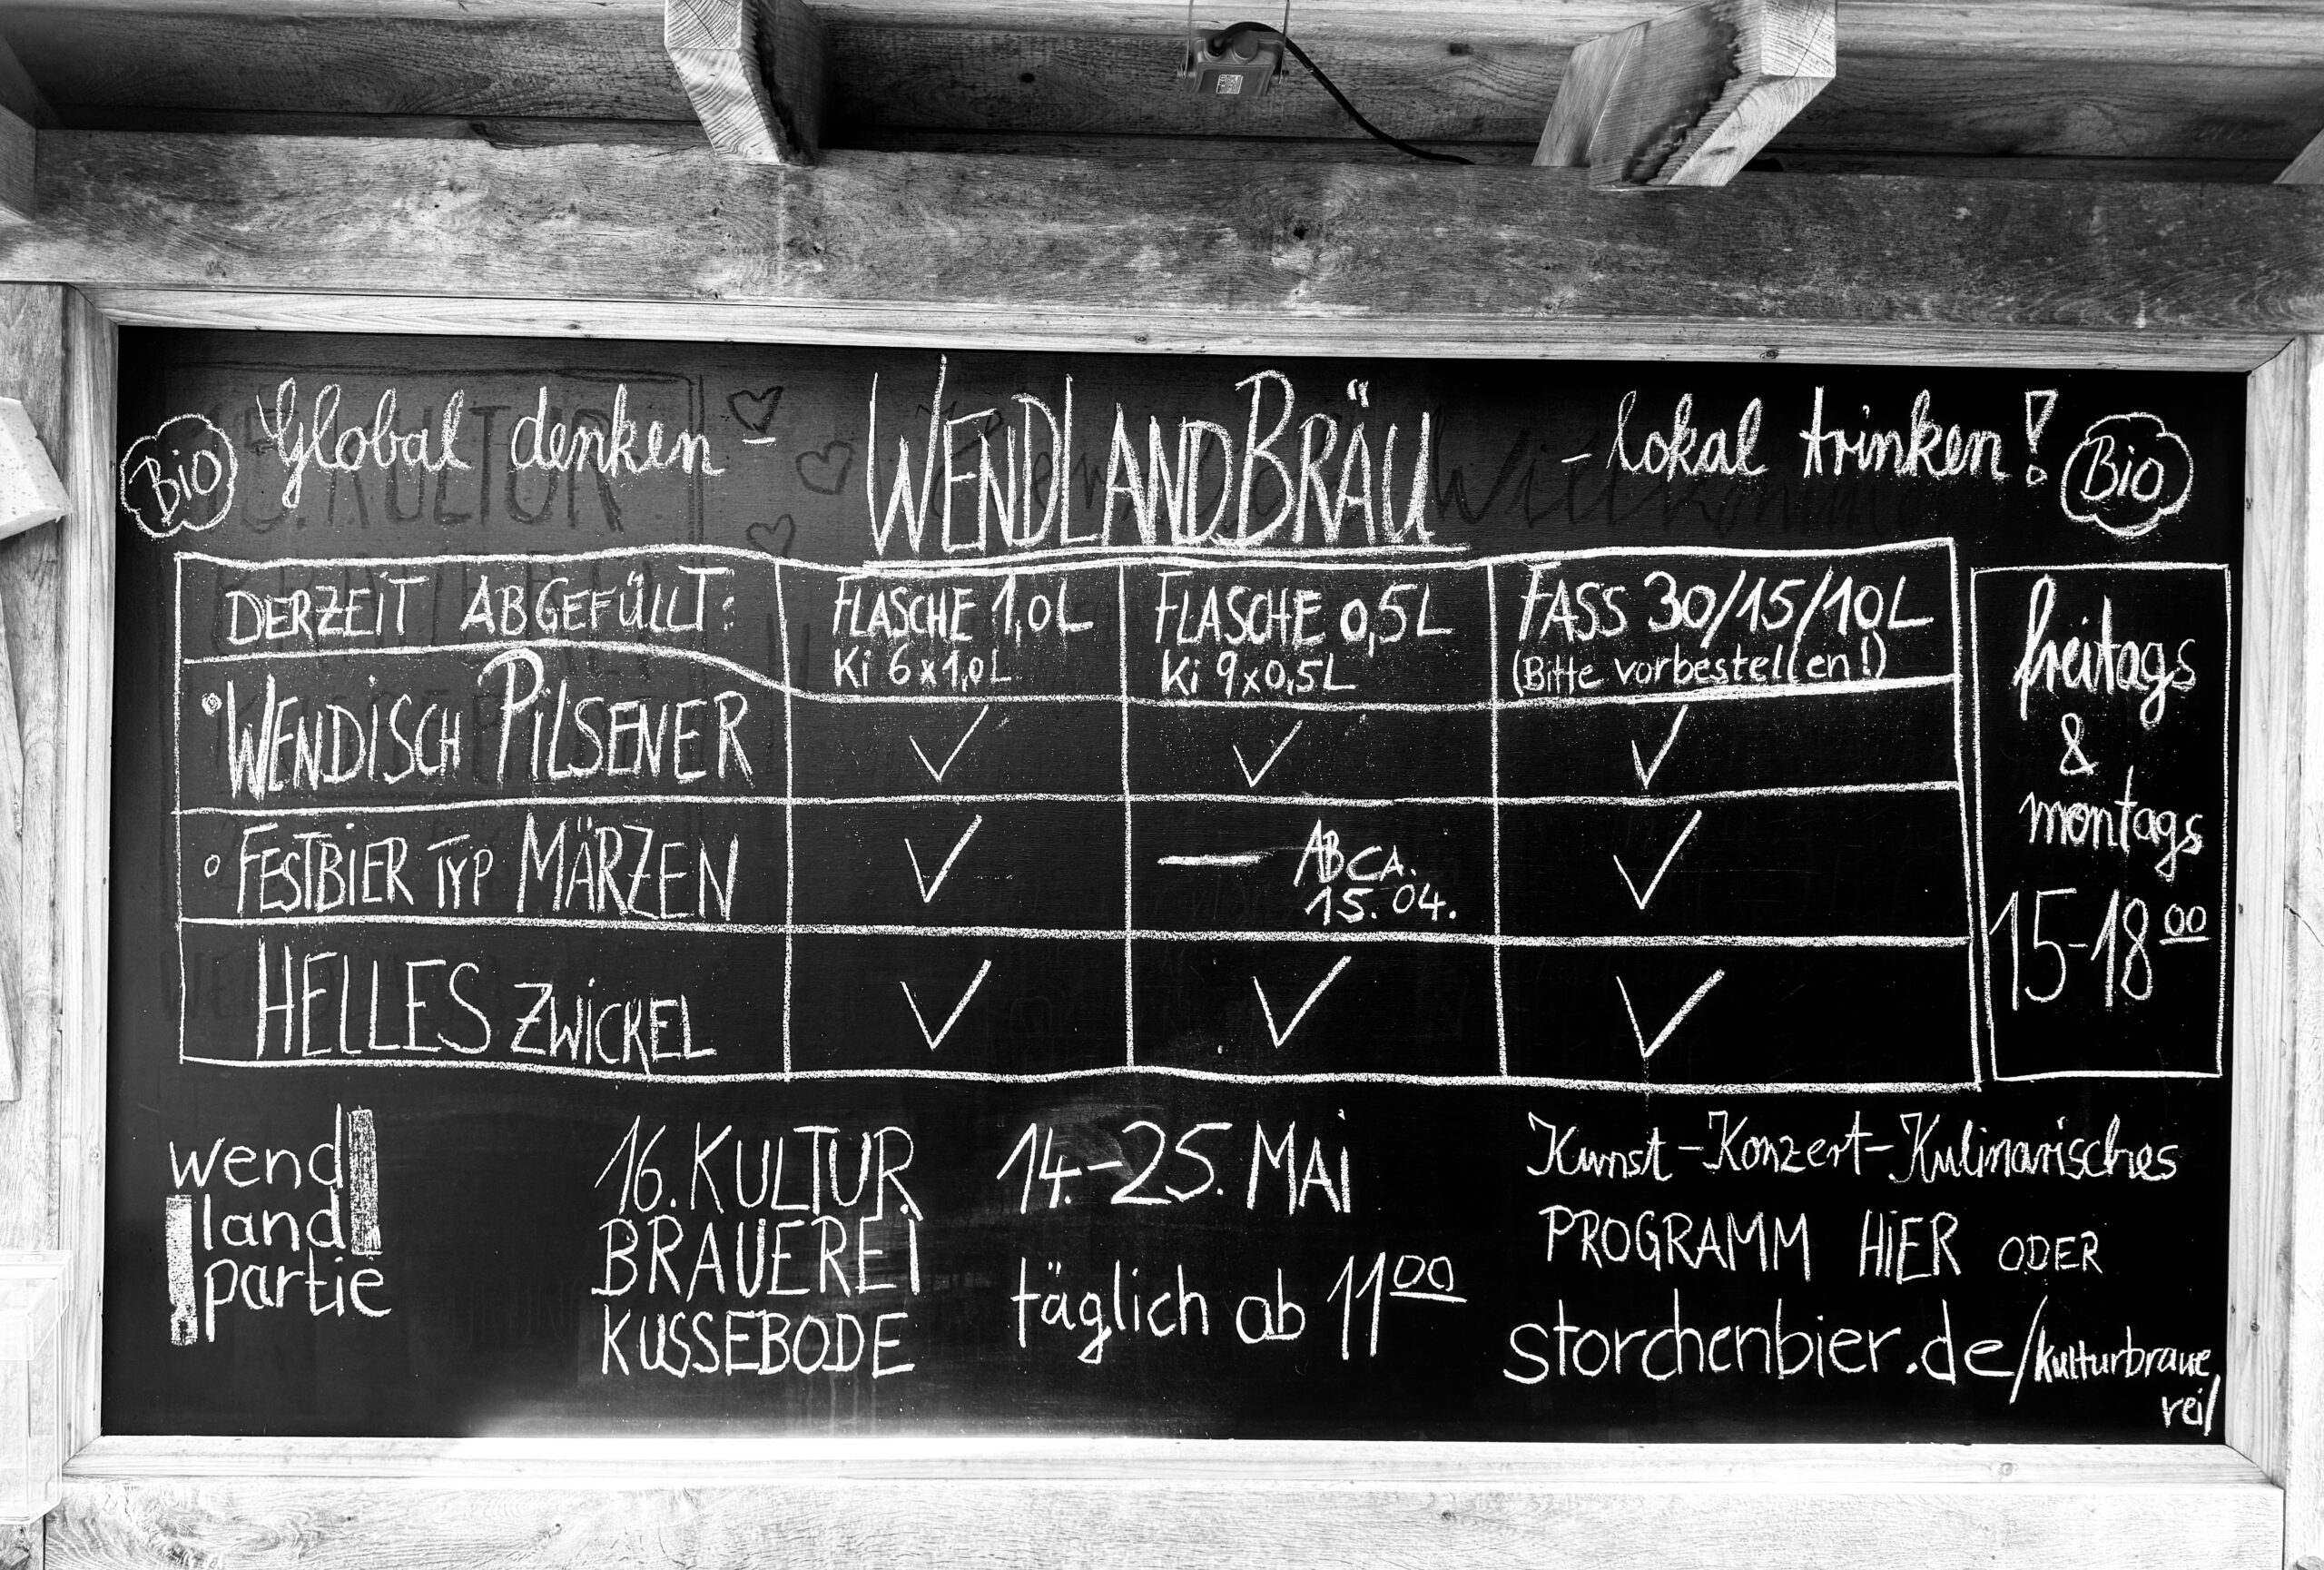 Bio Global denken - WENDLANDBRÄU - lokal trinken! Bio
DERZEIT ABGEFÜLLT: FLASCHE 1,0L FLASCHE 0,5L FASS 30/15/10L
Ki 6x1,0L Ki 9x0,5L (Bitte vorbestellen!)
WENDISCH PILSENER ✓ ✓ ✓
FESTBIER TYP MÄRZEN ✓ — AB CA. ✓
15.04.
HELLES ZWICKEL ✓ ✓ ✓
freitags
&
montags
15-18⁰⁰
wend
land
partie
16. KULTUR
BRAUEREI
KUSSEBODE
14.-25. MAI
täglich ab 11⁰⁰
Kunst-Konzert-Kulinarisches
PROGRAMM HIER ODER
storchenbier.de/kulturbraue
rei/